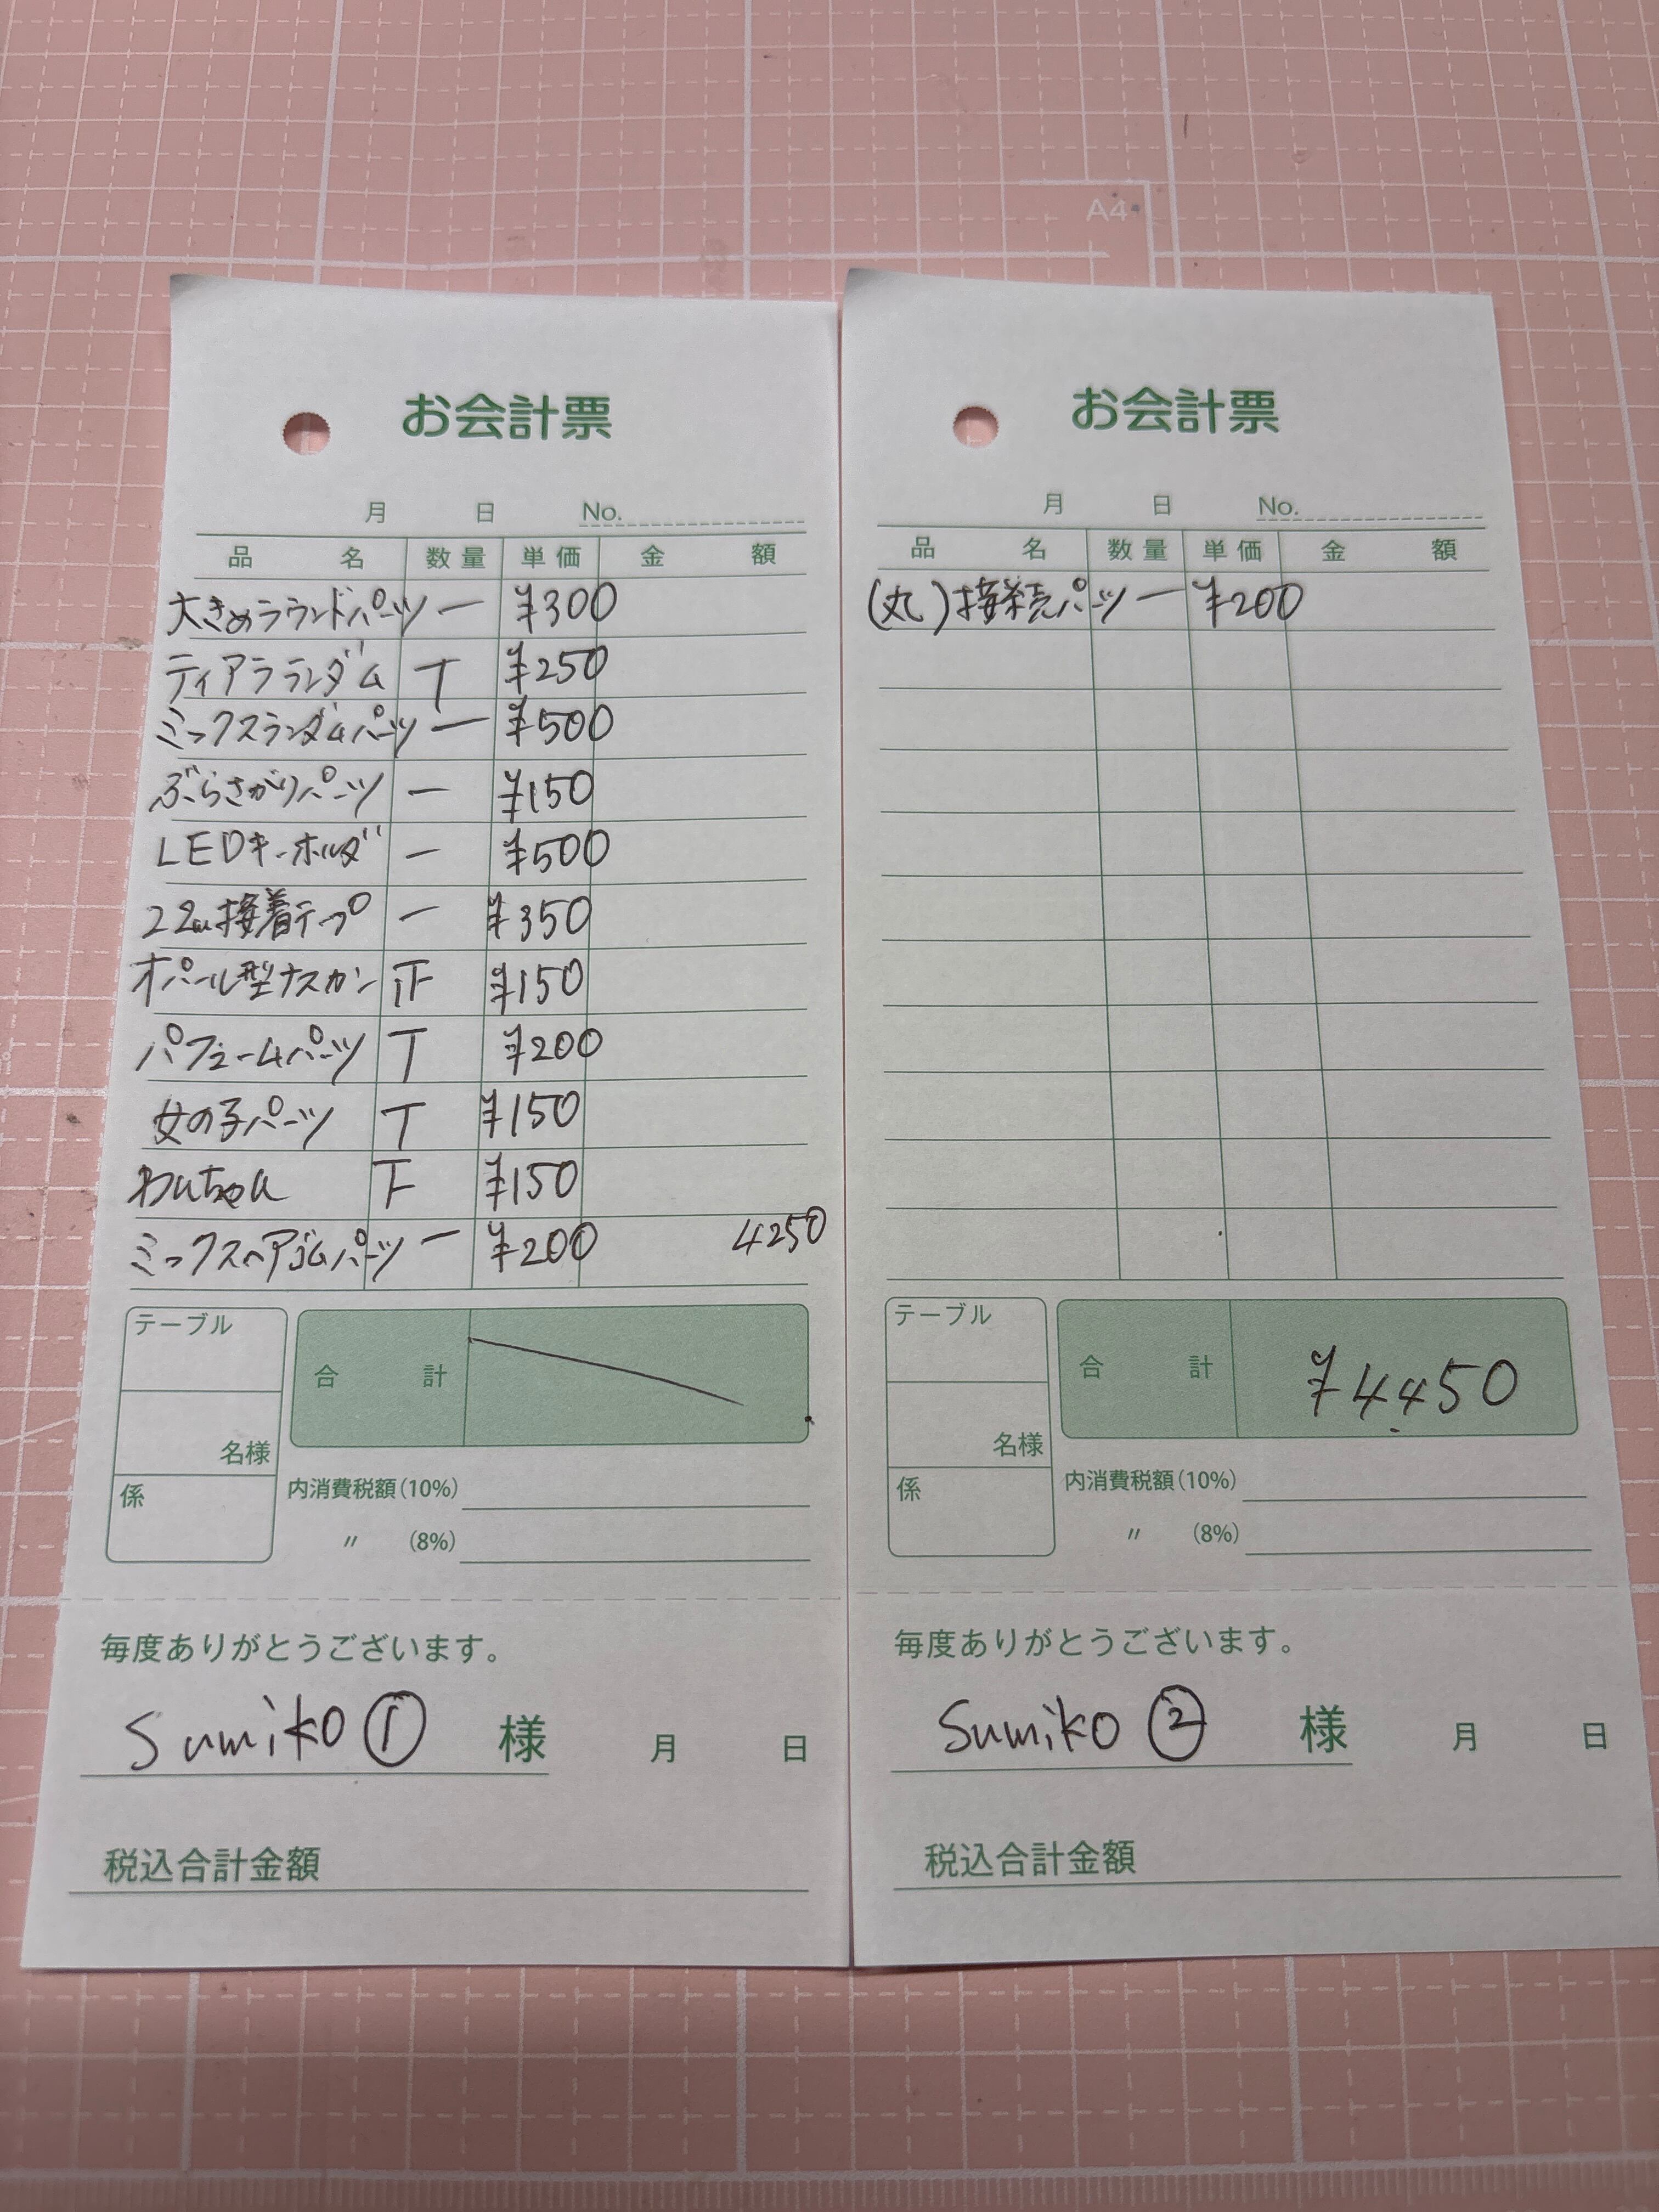 A4
お会計票
月 日 No.
品名 数量 単価 金額
大きめラウンドパーツ 一 ¥300
ティアラランダム T ¥250
ミックスランダムパーツ 一 ¥500
ぶらさがりパーツ 一 ¥150
LEDキーホルダ 一 ¥500
22m接着テープ 一 ¥350
オパール型ナスカン 正 ¥150
パフュームパーツ T ¥200
女の子パーツ T ¥150
わんちゃん 下 ¥150
ミックスヘアゴムパーツ 一 ¥200 4250
テーブル
名様
係
合計
内消費税額(10%)
〃 (8%)
毎度ありがとうございます。
Sumiko ① 様 月 日
税込合計金額
お会計票
月 日 No.
品名 数量 単価 金額
(丸)接続パーツ 一 ¥200
テーブル
名様
係
合計 ¥4450
内消費税額(10%)
〃 (8%)
毎度ありがとうございます。
Sumiko ② 様 月 日
税込合計金額